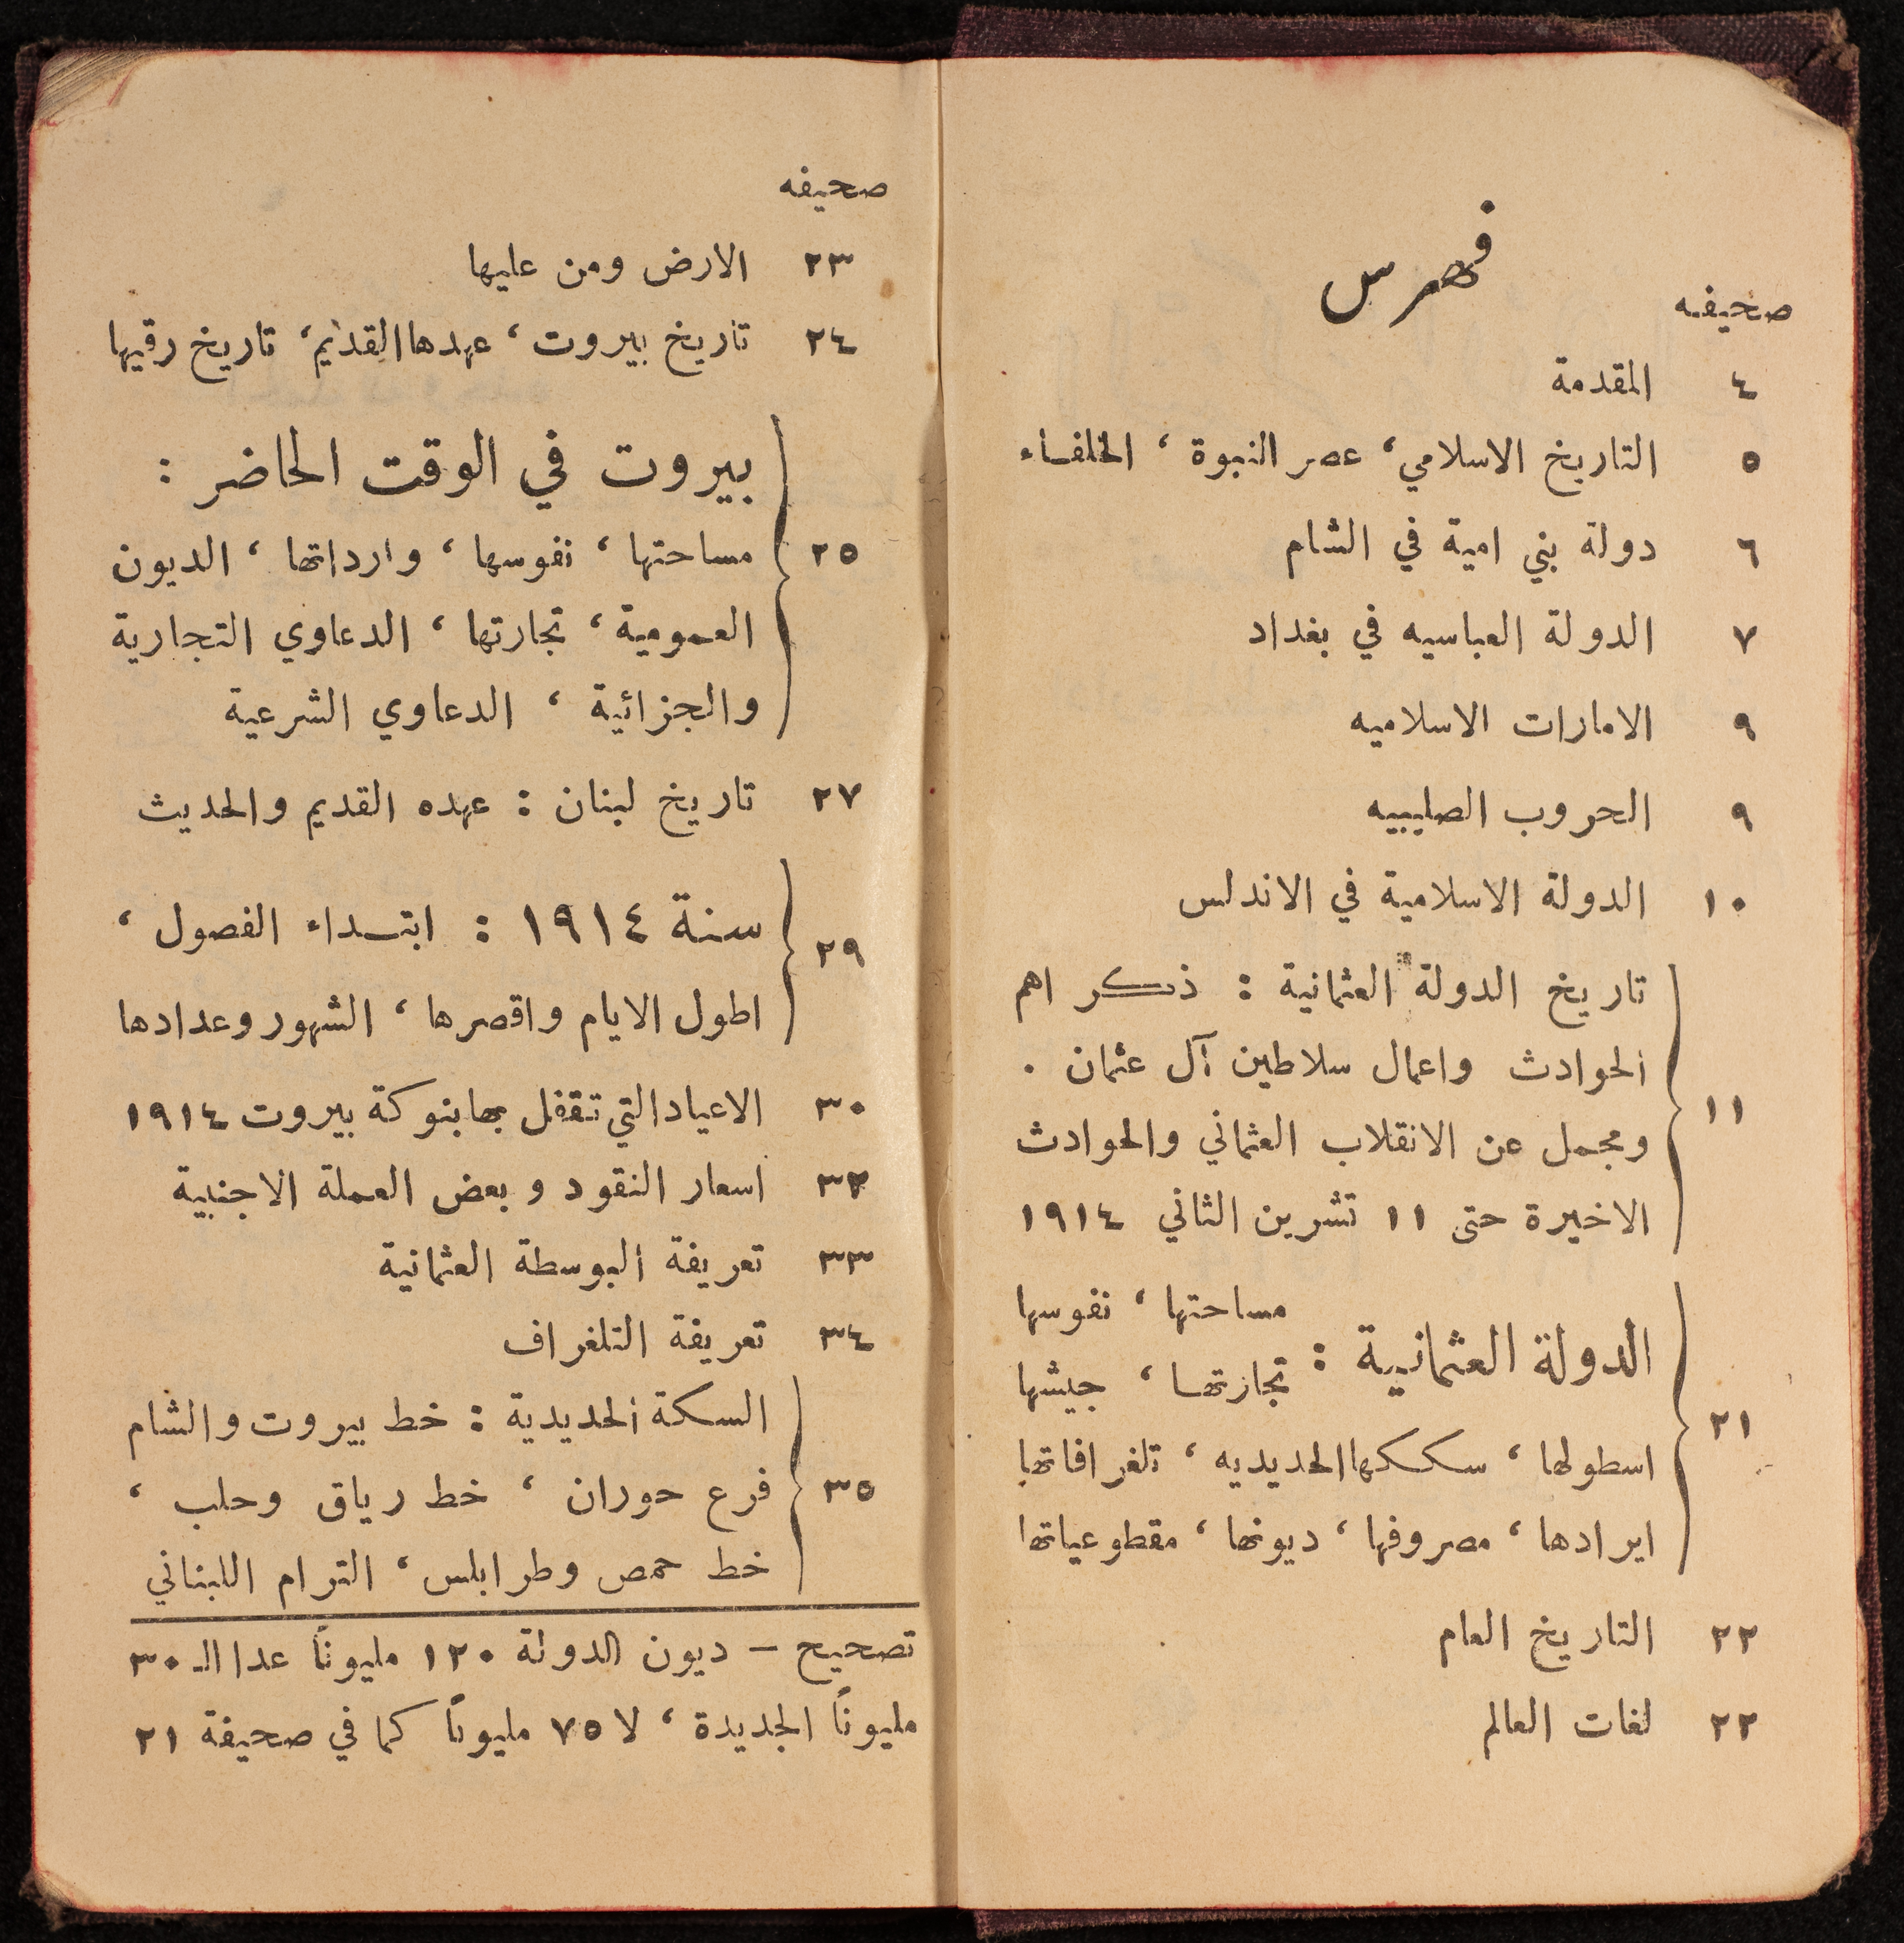 فهرس
صحيفه
٤ المقدمة
٥ التاريخ الاسلامي، عصر النبوة، الخلفاء
٦ دولة بني امية في الشام
٧ الدولة العباسيه في بغداد
٩ الامارات الاسلاميه
٩ الحروب الصليبيه
١٠ الدولة الاسلامية في الاندلس
تاريخ الدولة العثمانية : ذكر اهم
الحوادث واعمال سلاطين آل عثمان .
١١ ومجمل عن الانقلاب العثماني والحوادث
الاخيرة حتى ١١ تشرين الثاني ١٩١٤
الدولة العثمانية : مساحتها، نفوسها
تجارتها، جيشها
٢١ اسطولها، سككها الحديديه، تلغرافاتها
ايرادها، مصروفها، ديونها، مقطوعياتها
٢٢ التاريخ العام
٢٢ لغات العالم
صحيفه
٢٣ الارض ومن عليها
٢٤ تاريخ بيروت، عهدها القديم، تاريخ رقيها
بيروت في الوقت الحاضر :
٢٥ مساحتها، نفوسها، وارداتها، الديون
العمومية، تجارتها، الدعاوي التجارية
والجزائية، الدعاوي الشرعية
٢٧ تاريخ لبنان : عهده القديم والحديث
٢٩ سنة ١٩١٤ : ابتداء الفصول،
اطول الايام واقصرها، الشهور وعدادها
٣٠ الاعياد التي تقفل بها بنوكة بيروت ١٩١٤
٣٢ اسعار النقود وبعض العملة الاجنبية
٣٣ تعريفة البوسطة العثمانية
٣٤ تعريفة التلغراف
السكة الحديدية : خط بيروت والشام
٣٥ فرع حوران، خط رياق وحلب،
خط حمص وطرابلس، الترام اللبناني
تصحيح – ديون الدولة ١٢٠ مليونًا عدا الـ ٣٠
مليونًا الجديدة، لا ٧٥ مليونًا كما في صحيفة ٢١